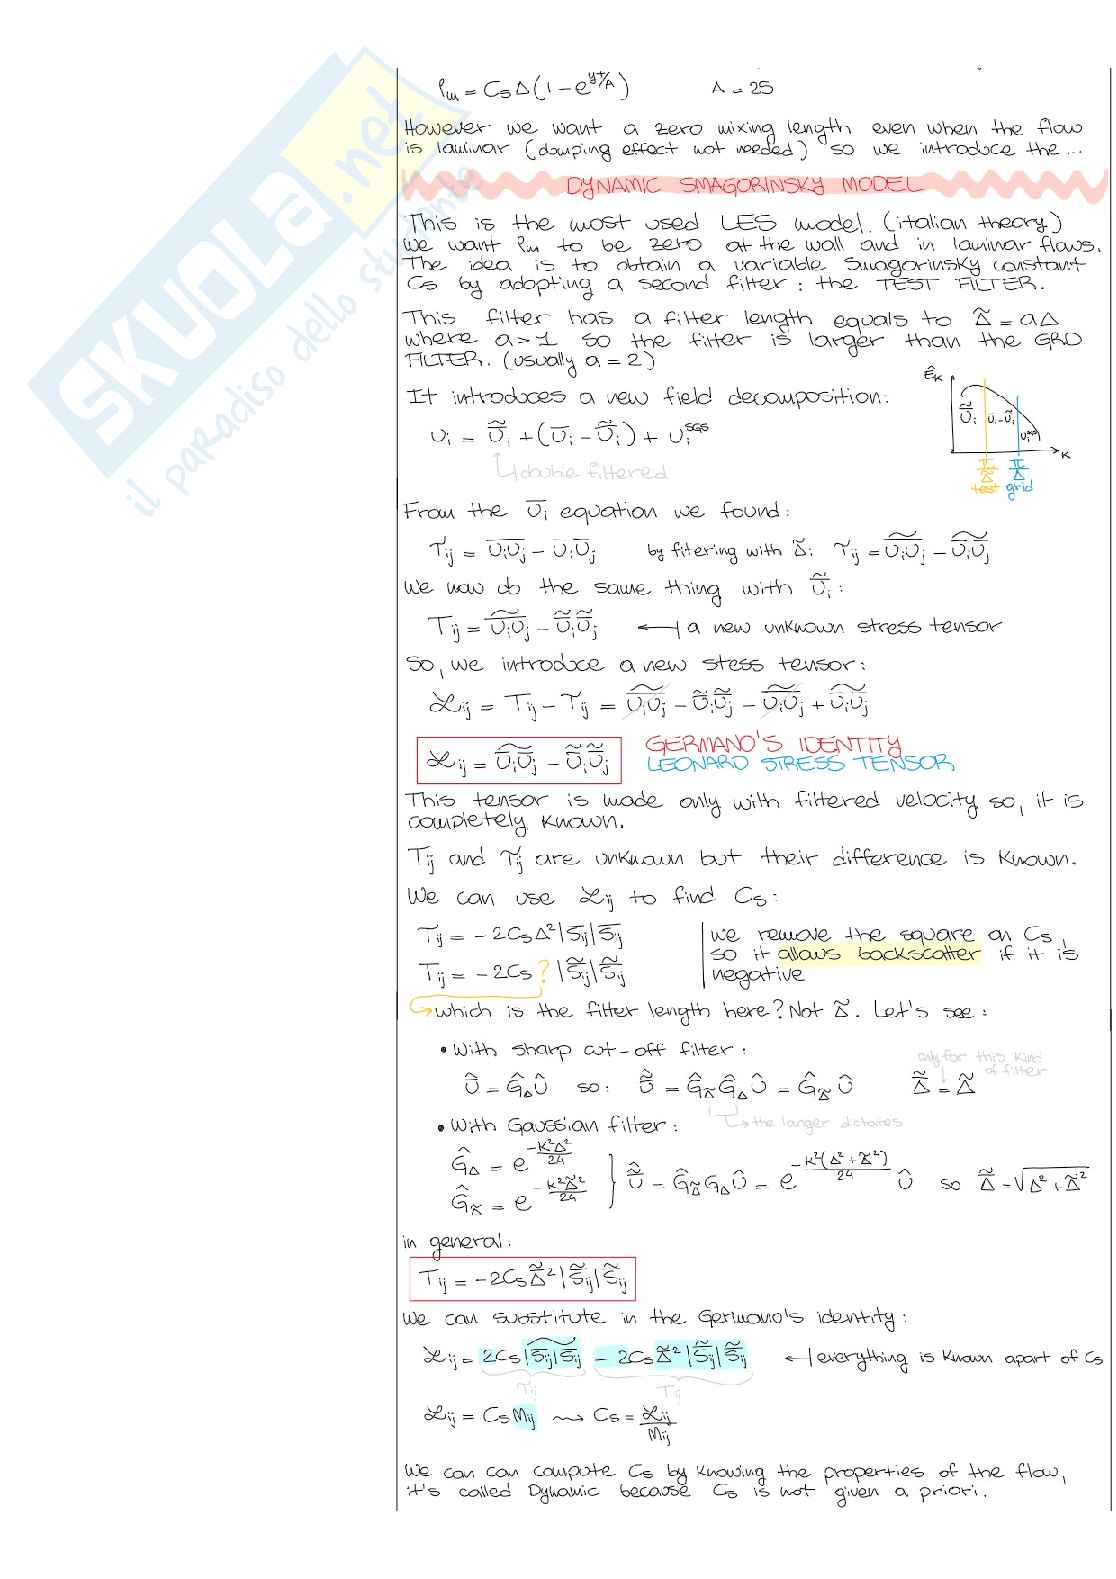 SKUOLA.net
il paradiso dello studente
ℓm = Cs Δ (1 - e^{y+/A})   A = 25
However we want a zero mixing length even when the flow
is laminar (damping effect not needed) so we introduce the ...
DYNAMIC SMAGORINSKY MODEL
This is the most used LES model. (italian theory)
We want ℓm to be zero at the wall and in laminar flows.
The idea is to obtain a variable Smagorinsky constant
Cs by adopting a second filter: the TEST FILTER.
This filter has a filter length equals to Δ̃ = aΔ
where a > 1 so the filter is larger than the GRID
FILTER. (usually a = 2)
It introduces a new field decomposition:
Ui = Ũ̄i + (Ūi - Ũ̄i) + Ui^SGS
double filtered
ÊK
Ũ̄i   Ūi - Ũ̄i   Ui^SGS
K
π/Δ̃   π/Δ
test grid
From the Ūi equation we found:
τij = \overline{UiUj} - ŪiŪj   by filtering with Δ̃:   τ̃ij = \widetilde{\overline{UiUj}} - \widetilde{ŪiŪj}
We now do the same thing with Ũ̄i:
Tij = \widetilde{\overline{UiUj}} - Ũ̄iŨ̄j   a new unknown stress tensor
So, we introduce a new stess tensor:
ℒij = Tij - τij = \widetilde{\overline{UiUj}} - Ũ̄iŨ̄j - \widetilde{\overline{UiUj}} + \widetilde{ŪiŪj}
ℒij = \widetilde{ŪiŪj} - Ũ̄iŨ̄j   GERMANO'S IDENTITY
LEONARD STRESS TENSOR
This tensor is made only with filtered velocity so, it is
completely known.
Tij and τij are unknown but their difference is known.
We can use ℒij to find Cs:
τij = -2CsΔ²|S̄ij|S̄ij
Tij = -2Cs ? |S̃̄ij|S̃̄ij
we remove the square on Cs,
so it allows backscatter if it is
negative
which is the filter length here? Not Δ̃. Let's see:
• With sharp cut-off filter:
only for this kind
of filter
Û = ĜΔÛ   so:   Û̃ = ĜΔ̃ĜΔÛ = ĜΔ̃Û   Δ̃̄ = Δ̃
the larger dictates
• With Gaussian filter:
ĜΔ = e^{-K²Δ²/24}
ĜΔ̃ = e^{-K²Δ̃²/24}
Û̃ = ĜΔ̃GΔÛ = e^{-K²(Δ²+Δ̃²)/24} Û   so   Δ̃̄ = √(Δ²+Δ̃²)
in general:
Tij = -2CsΔ̃̄²|S̃̄ij|S̃̄ij
We can substitute in the Germano's identity:
ℒij = 2Cs\widetilde{|S̄ij|S̄ij} - 2CsΔ̃̄²|S̃̄ij|S̃̄ij   everything is known apart of Cs
τij   Tij
ℒij = CsMij ⇝ Cs = ℒij/Mij
We can can compute Cs by knowing the properties of the flow,
it's called Dynamic because Cs is not given a priori.